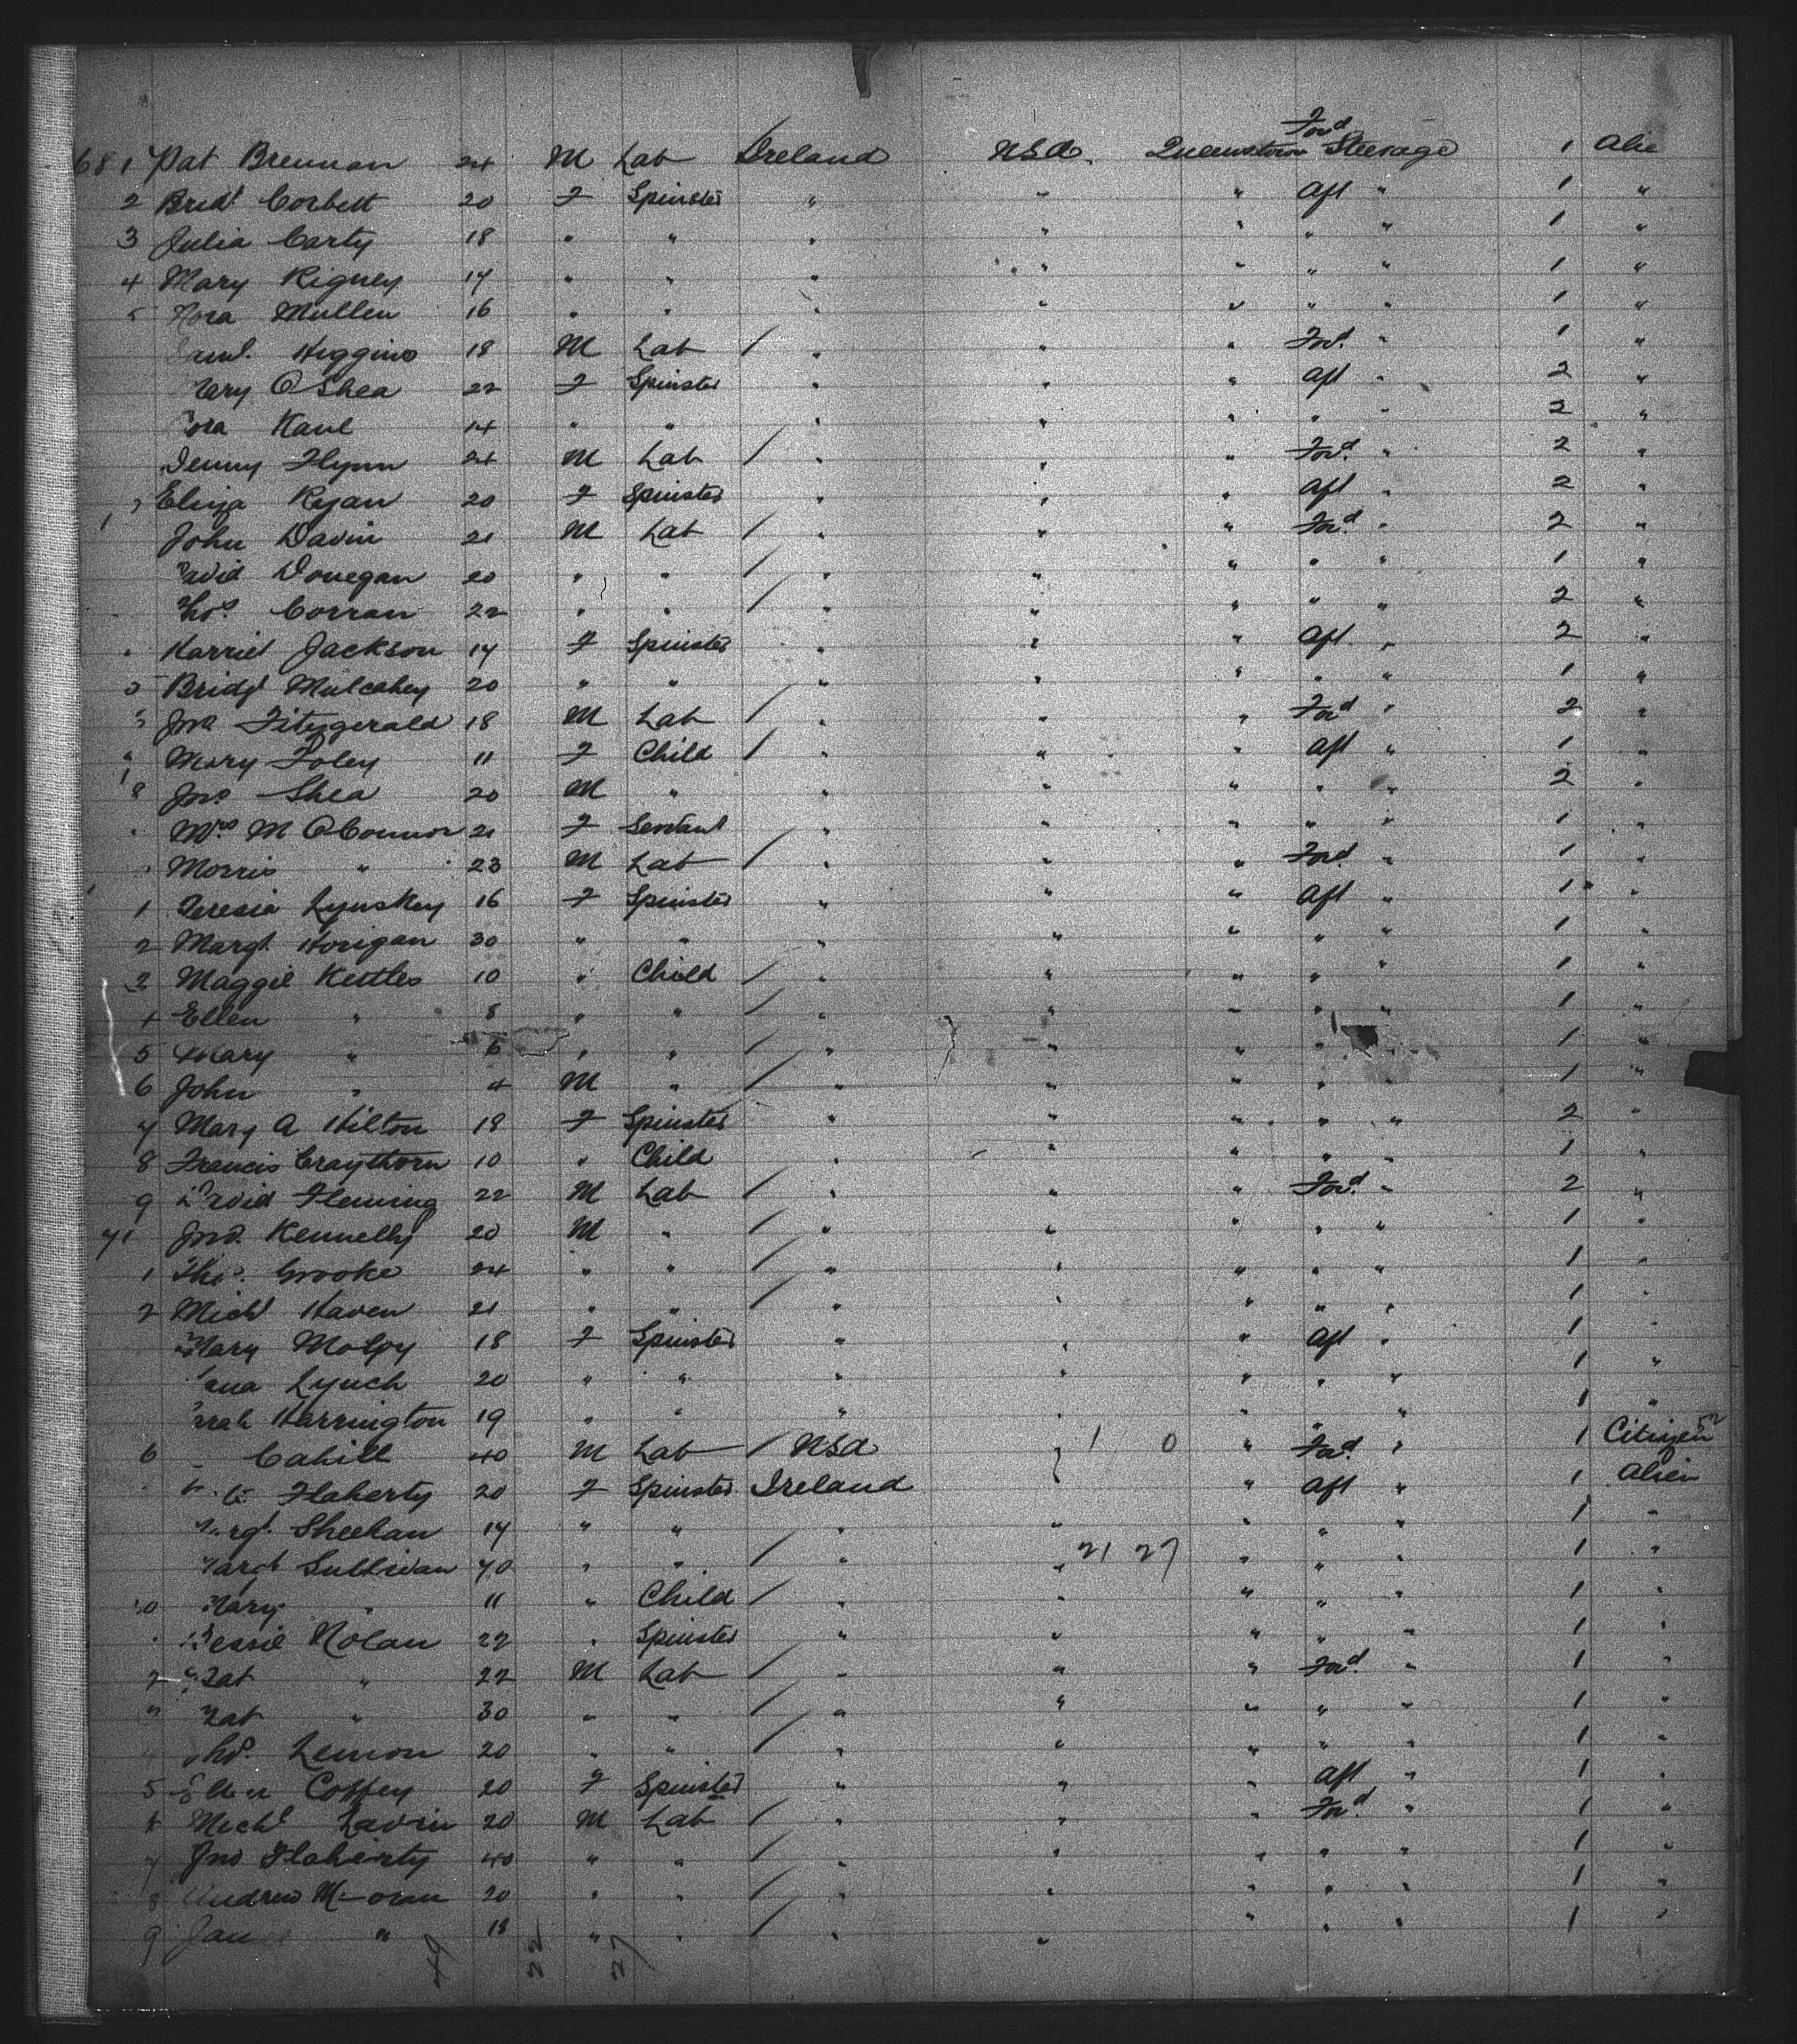 681 Pat Brennan 24 M Lab Ireland USA. Queenstown Ford Steerage 1 Alie
2 Brid' Corbett 20 F Spinster " " " Aft " 1 "
3 Julia Carty 18 " " " " " " " 1 "
4 Mary Rigney 17 " " " " " " " 1 "
5 Nora Mullen 16 " " " " " " " 1 "
Higgins 18 M Lab / " " " Ford " 1 "
ary O'Shea 22 F Spinster " " " Aft " 2 "
ora Kane 14 " " " " " " " 2 "
Denny Flynn 24 M Lab / " " " Ford " 2 "
Eliza Ryan 20 F Spinster " " " Aft " 2 "
John Davin 21 M Lab / " " " Ford " 2 "
avid Donegan 20 " " / " " " " " 1 "
Thos Corran 22 " " / " " " " " 2 "
Harriet Jackson 17 F Spinster " " " Aft " 2 "
5 Bridgt Mulcahey 20 " " " " " " " 1 "
Jno Fitzgerald 18 M Lab / " " " Ford " 2 "
Mary Foley 11 F Child / " " " Aft " 1 "
8 Jno Shea 20 M " " " " " " 2 "
Mrs M O'Connor 21 F Servant " " " " " 1 "
Morris " 23 M Lab / " " " Ford " 1 "
1 Teresia Lynskey 16 F Spinster " " " Aft " 1 "
2 Margt Horigan 30 " " " " " " " 1 "
Maggie Kettles 10 " Child / " " " " " 1 "
4 Ellen " 8 " " / " " " " " 1 "
5 Mary " 6 " " / " " " " " 1 "
6 John " 4 M " / " " " " " 1 "
7 Mary A Hilton 18 F Spinster " " " " " 2 "
8 Francis Craythorn 10 " Child " " " " " 1 "
9 David Fleming 22 M Lab / " " " Ford " 2 "
71 Jno. Kennelly 20 M " / " " " " " 1 "
1 Tho. Grooke 24 " " / " " " " " 1 "
2 Michl Haven 21 " " / " " " " " 1 "
Mary Moloy 18 F Spinster " " " Aft " 1 "
Lynch 20 " " " " " " " 1 "
arah Harrington 19 " " " " " " " 1 "
6 Cahill 40 M Lab / USA " 1 0 " Ford " 1 Citizen 52
Flaherty 20 F Spinster Ireland " Aft " 1 Alien
argt. Sheehan 17 " " " " " " " 1 "
argt Sullivan 40 " " / " " 21 27 " " " 1 "
Mary " 11 " Child / " " " " " 1 "
Bessie Nolan 22 " Spinster " " " " " 1 "
2 Pat " 22 M Lab / " " " Ford " 1 "
Pat " 30 " " / " " " " " 1 "
Tho. Lemon 20 " " / " " " " " 1 "
5 Ellen Coffey 20 F Spinster " " " Aft " 1 "
Michl Lavin 20 M Lab / " " " Ford " 1 "
7 Jno Flaherty 40 " " / " " " " " 1 "
8 Andrew M oran 20 " " / " " " " " 1 "
9 Jam " 18 " " / " " " " " 1 "
49 22 27